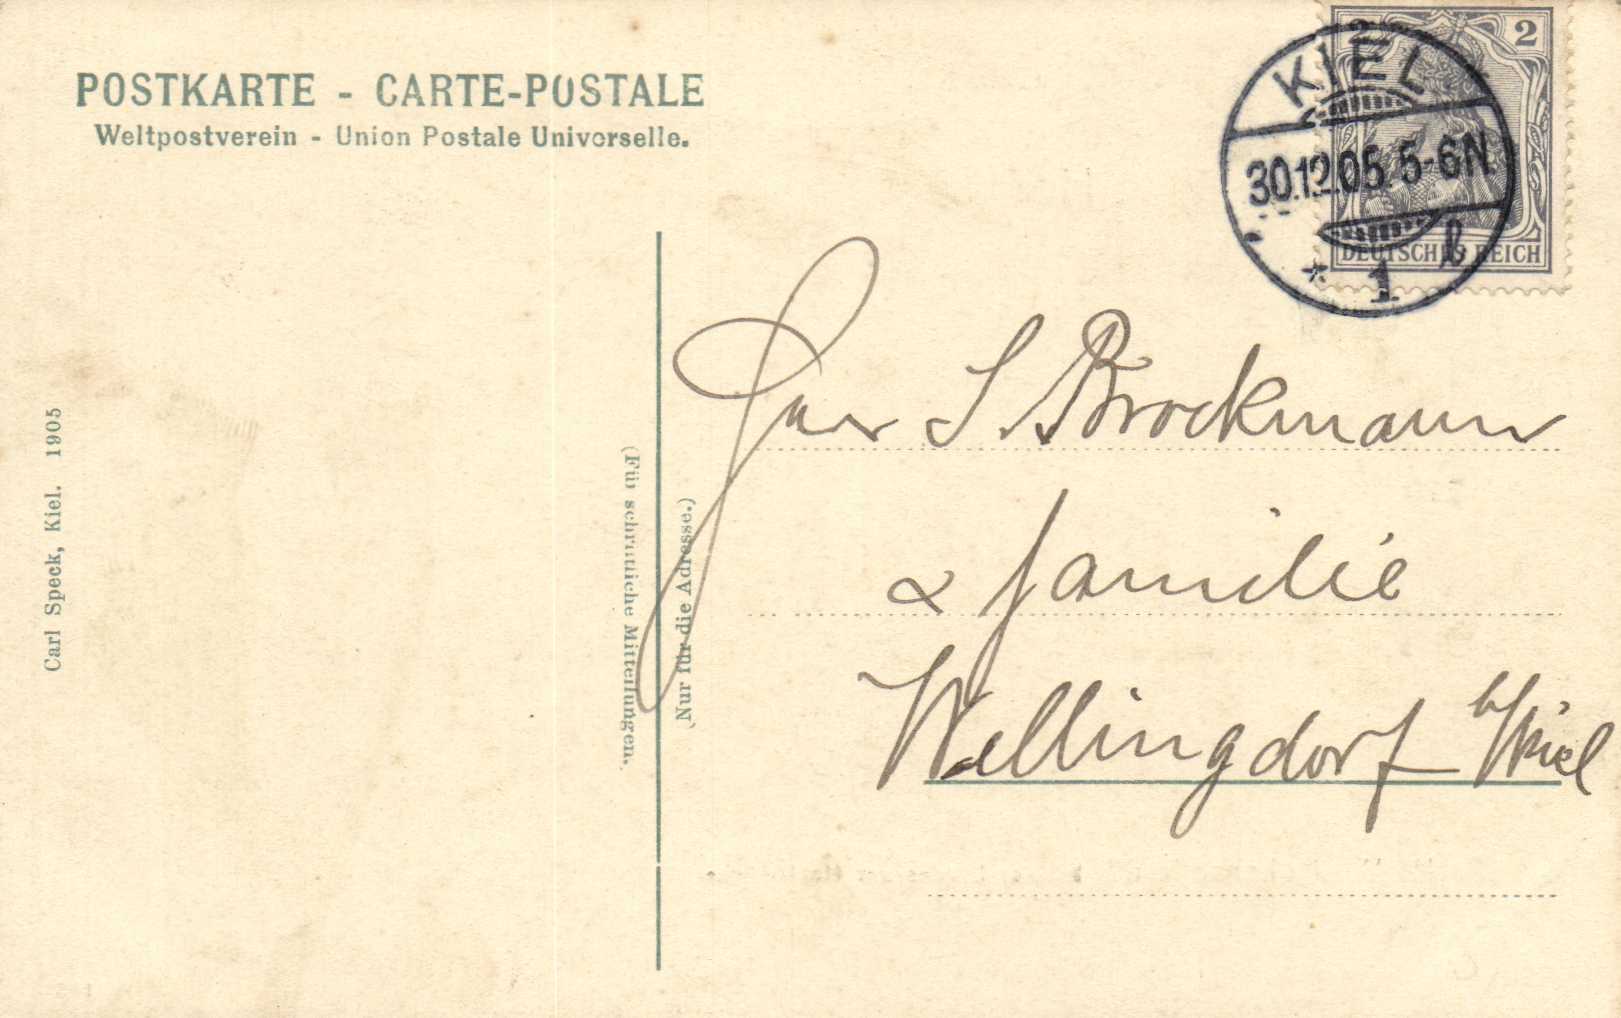 POSTKARTE - CARTE-POSTALE
Weltpostverein - Union Postale Universelle.
2
KIEL
30.12.05. 5-6N
* 1 b
DEUTSCHES REICH
Carl Speck, Kiel. 1905
(Für schriftliche Mitteilungen.
(Nur für die Adresse.)
S. Brockmann
& Familie
Wellingdorf b/Kiel